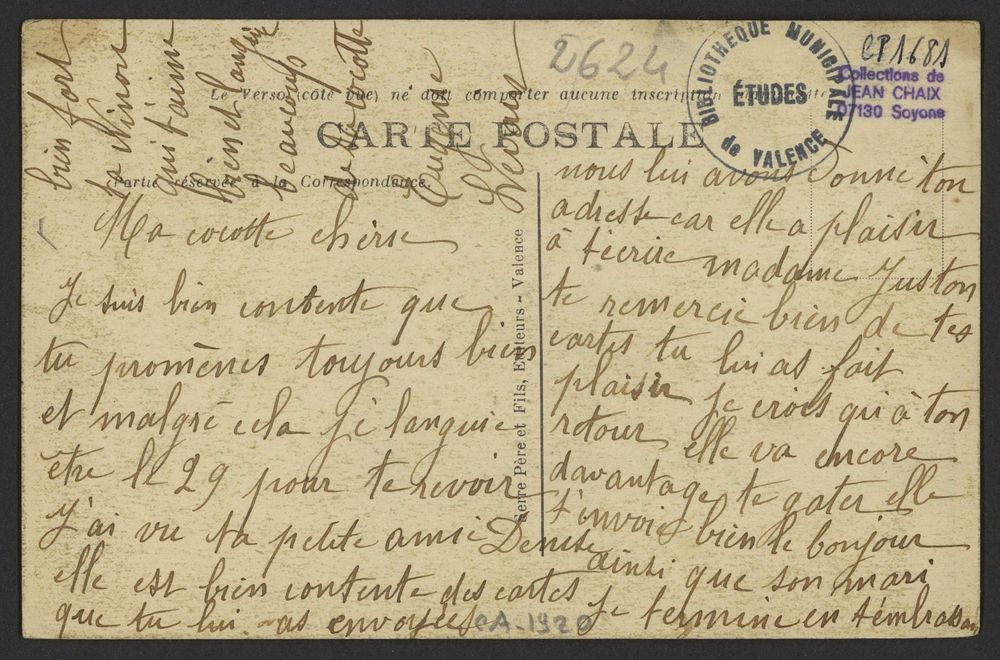 2624
CP1681
BIBLIOTHÈQUE MUNICIPALE
ÉTUDES
de VALENCE
Collections de
JEAN CHAIX
07130 Soyons
Le Verso (côté vue) ne doit comporter aucune inscription
CARTE POSTALE
Partie réservée à la Correspondance.
Serre Père et Fils, Editeurs - Valence
Ma cocotte cherse
Je suis bien contente que
tu promènes toujours bien
et malgré cela je languie
être le 29 pour te revoir
J'ai vu ta petite amie Denise
elle est bien contente des cartes
que tu lui as envoyées
CA-1920
nous lui avons donné ton
adresse car elle a plaisir
à t'écrire madame Juston
te remercie bien de tes
cartes tu lui as fait
plaisir je crois qu'à ton
rotour elle va encore
davantage te gater elle
t'envoie bien le bonjour
ainsi que son mari
je termine en t'embrassan
bien fort
ta Ninou
qui t'aime
bien et languie
beaucoup
de sa cocotte
Eugène